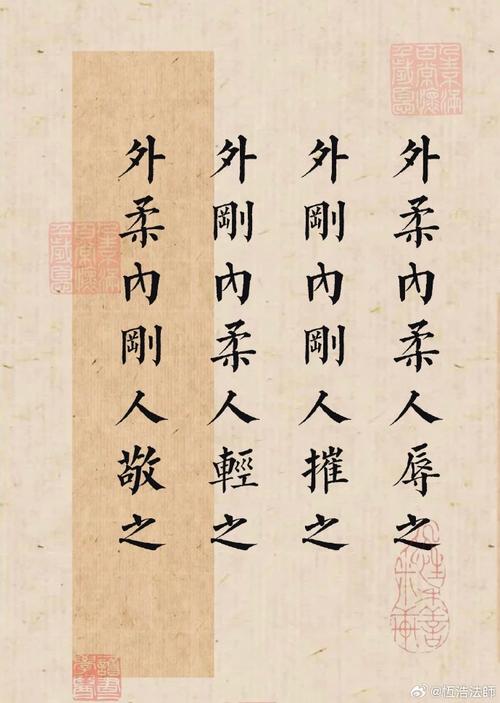 外柔內柔人辱之
外剛內剛人摧之
外剛內柔人輕之
外柔內剛人敬之
@恆浩法師